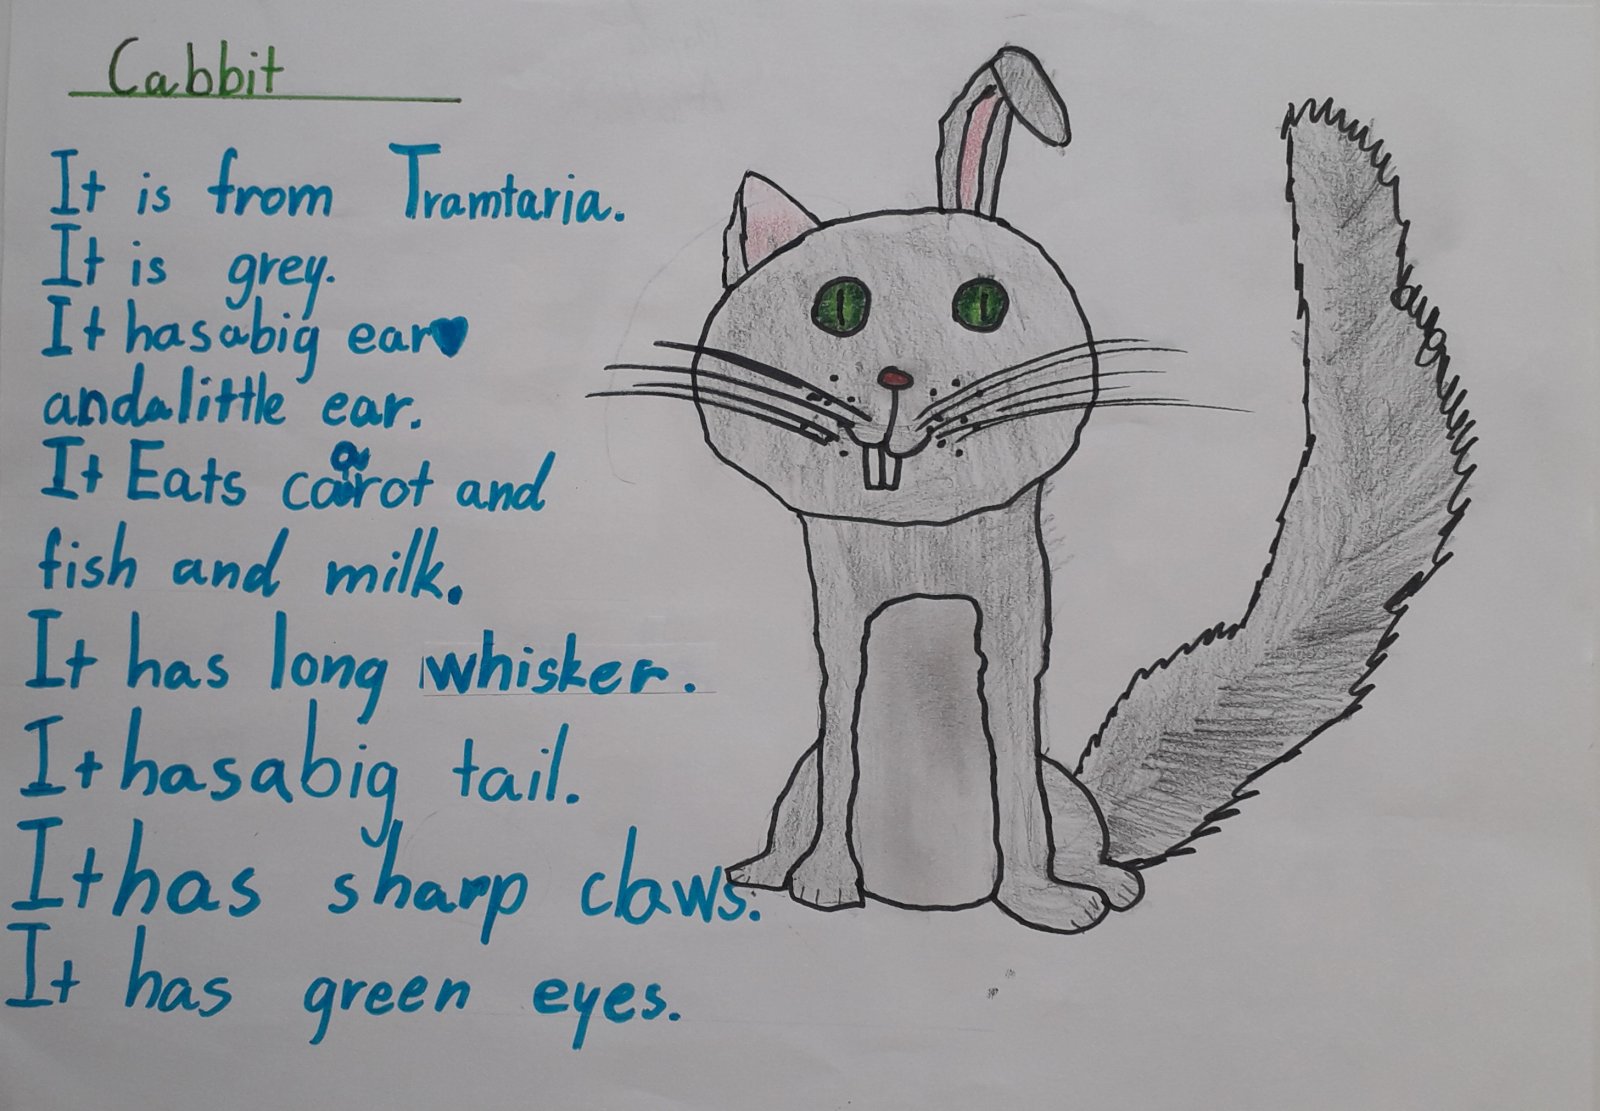 Cabbit
It is from Tramtaria.
It is grey.
It has a big ear
and a little ear.
It Eats carot and
fish and milk.
It has long whisker.
It has a big tail.
It has sharp claws.
It has green eyes.